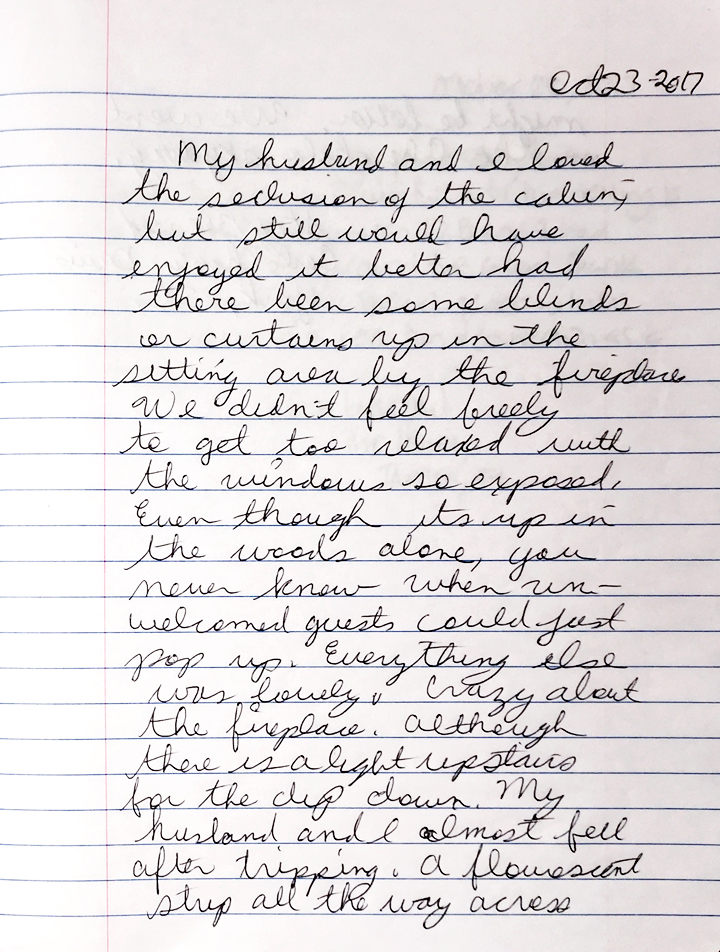 Oct 23-2017
My husband and I loved
the seclusion of the cabin,
but still would have
enjoyed it better had
there been some blinds
or curtains up in the
sitting area by the fireplace
We didn't feel freely
to get too relaxed with
the windows so exposed.
Even though its up in
the woods alone, you
never know when un-
welcomed guests could just
pop up. Everything else
was lovely. Crazy about
the fireplace. Although
there is a light upstairs
for the dip down. My
husband and I almost fell
after tripping. A flourescent
strip all the way across